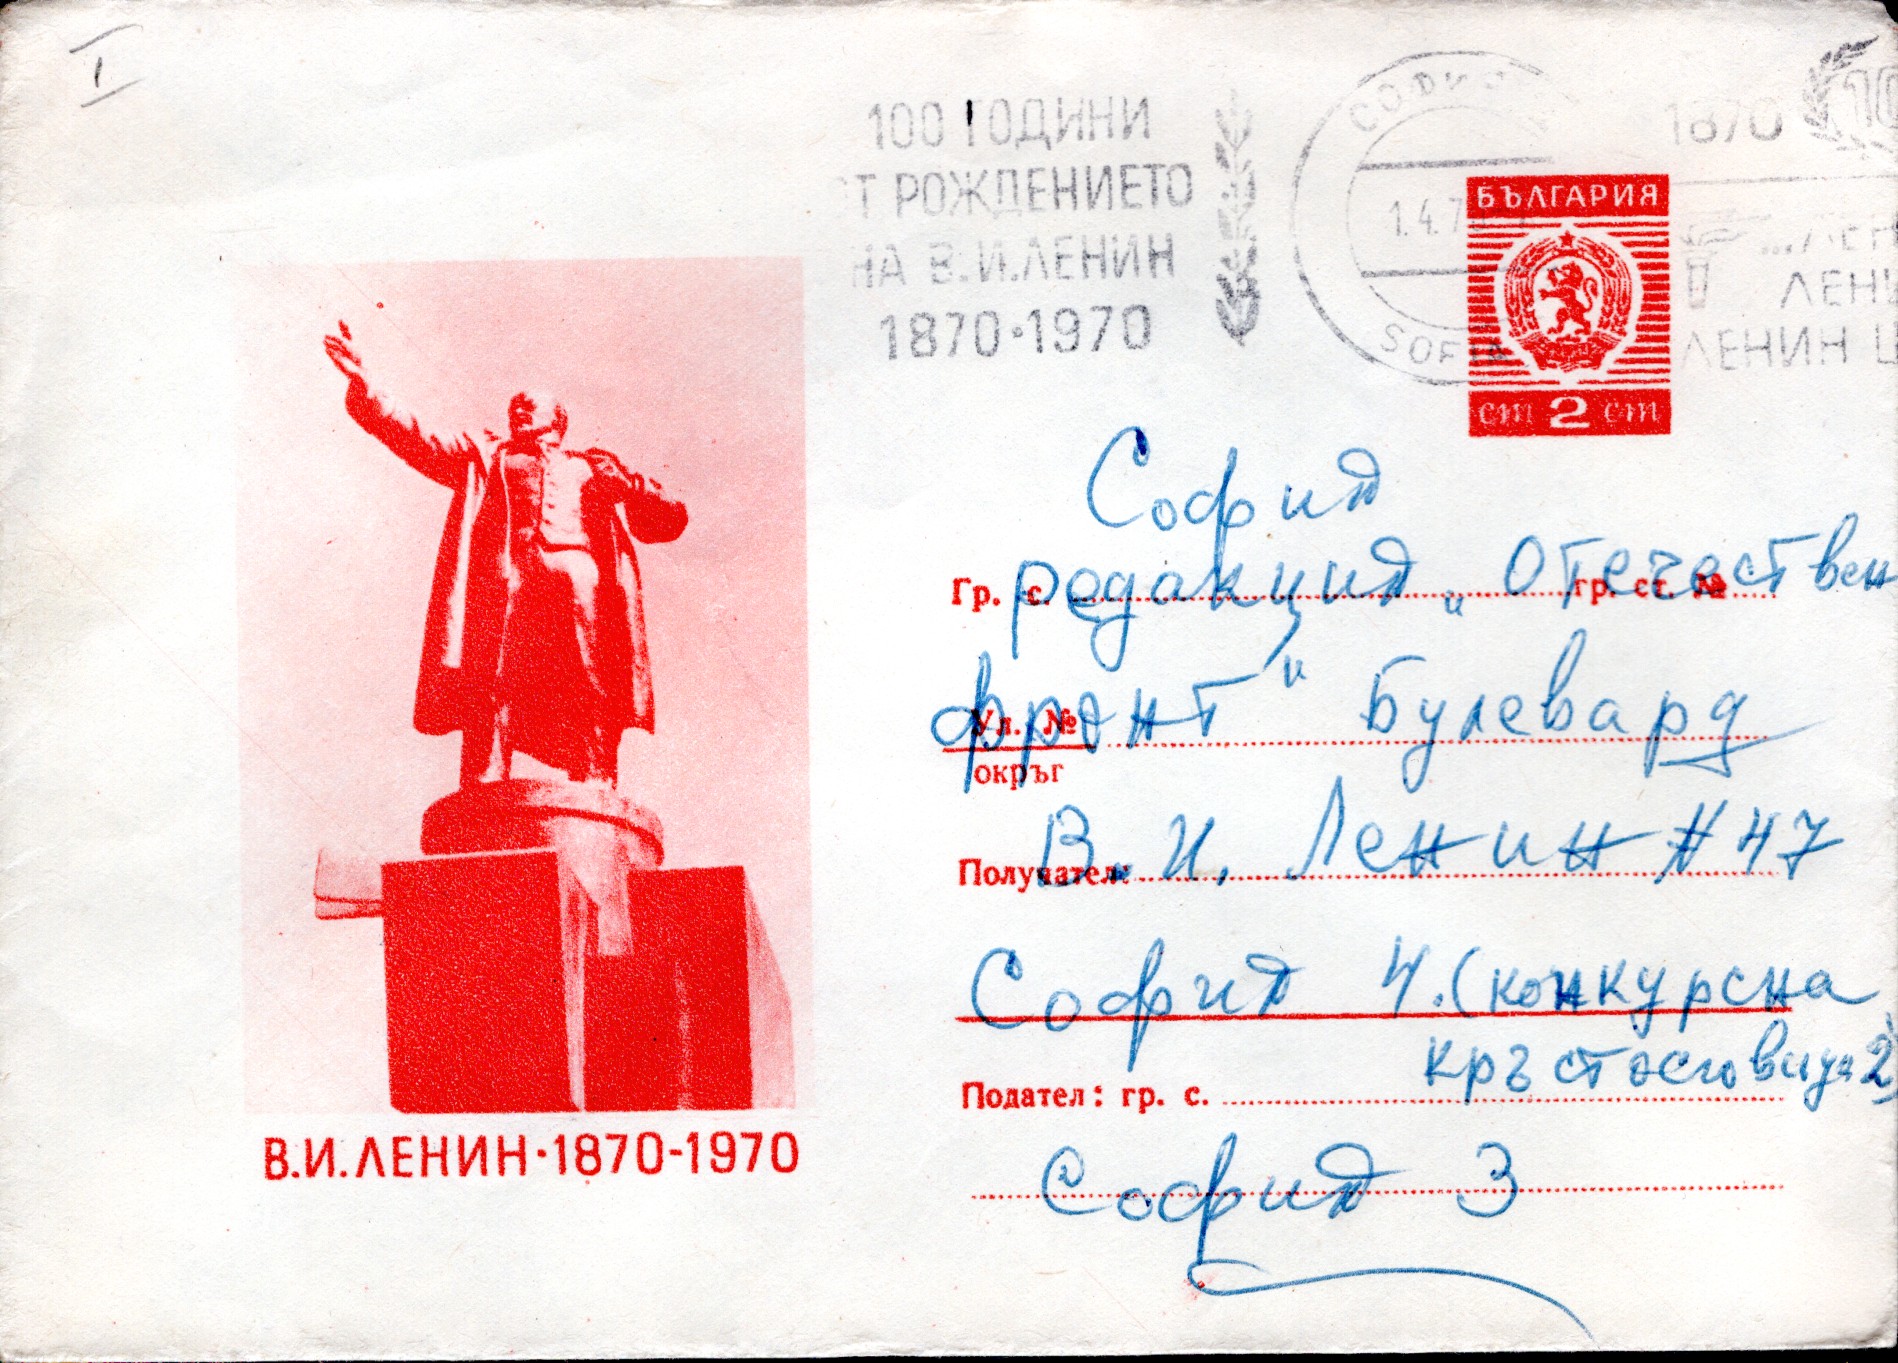 I
100 ГОДИНИ
ОТ РОЖДЕНИЕТО
НА В.И.ЛЕНИН
1870·1970
СОФИЯ
1.4.7
SOFIA
1870
10
...ЛЕН
ЛЕНИ
ЛЕНИН Ц
БЪЛГАРИЯ
ст 2 ст
София
Гр. с. гр. ст. №
редакция „Отечествен
фронт" Булевард
Ул. №
окръг
В. И. Ленин № 47
Получател:
София 4. (конкурсна
кръстословица 2)
Подател: гр. с.
София 3
В.И.ЛЕНИН·1870-1970